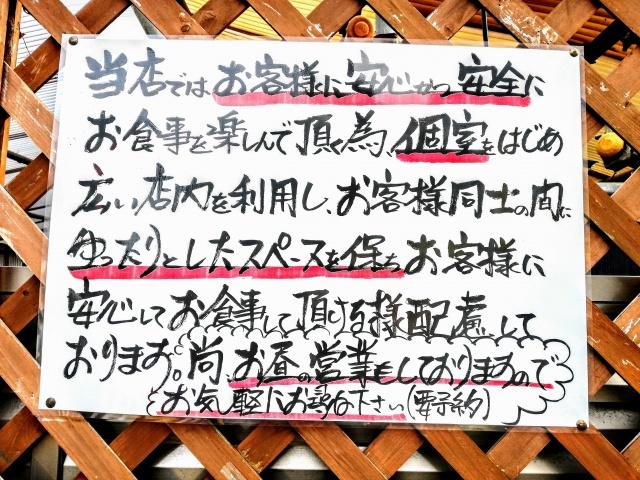 当店では、お客様に安心かつ安全に
お食事を楽しんで頂く為、個室をはじめ
広い店内を利用し、お客様同士の間に
ゆったりとしたスペースを保ち お客様に
安心してお食事して頂ける様配慮して
おります。尚、お昼の営業もしておりますので
お気軽にお尋ね下さい(要予約)